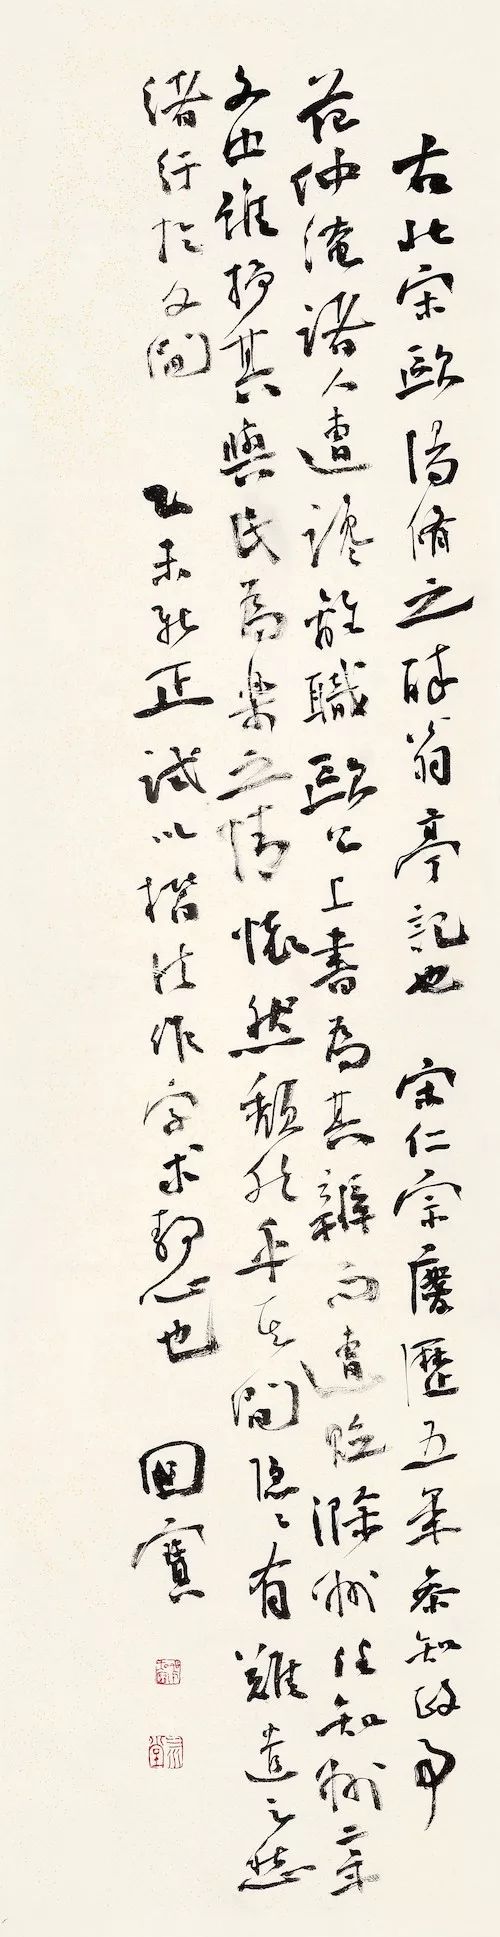 右北宋歐陽脩之醉翁亭記也 宋仁宗慶歷五年參知政事
范仲淹諸人遭讒離職歐公上書為其辯而遭貶滁州任知州二年
文中雖抒其與民為樂之情懷然頹然乎其間隱〻有難遣之愁
緒行於文間 乙未新正試以楷法作字求靜心也 國寶